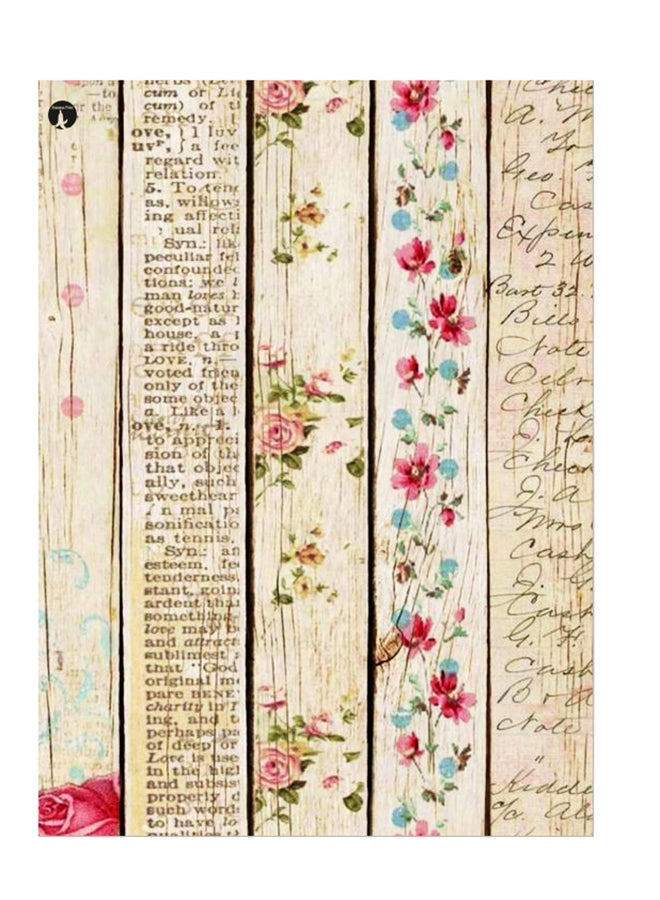 —to
or the
cum or Li
cum) of t
remedy.
ove, } 1 luv
uvᵖ, } a fee
regard wit
relation.
5. To ten
as, willow
ing affecti
ual rel
Syn.: lik
peculiar fel
confounded
tions: we l
man loves h
good-natur
except as
house, a
a ride thro
LOVE, n.—
voted frien
only of the
some objec
a. Like a l
ove, n. 1.
to appreci
sion of th
that objec
ally, such
sweethear
n mal pa
sonificatio
as tennis.
Syn.: af
esteem, fee
tenderness
stant, goin
ardent tha
something
love may b
and attract
sublimest
that "God
original m
pare BENE
charity in
ing, and t
perhaps pa
of deep or
Love is use
in the high
and subsis
properly d
such words
to have lo
A. M
Yo
Geo.
Cas
Expen
2 W
Bart 32.
Bills
Note
Check
J. A
Mrs
Cash
J. G.
Cash
G. F
Cash
B & A
Note
"
Kidde